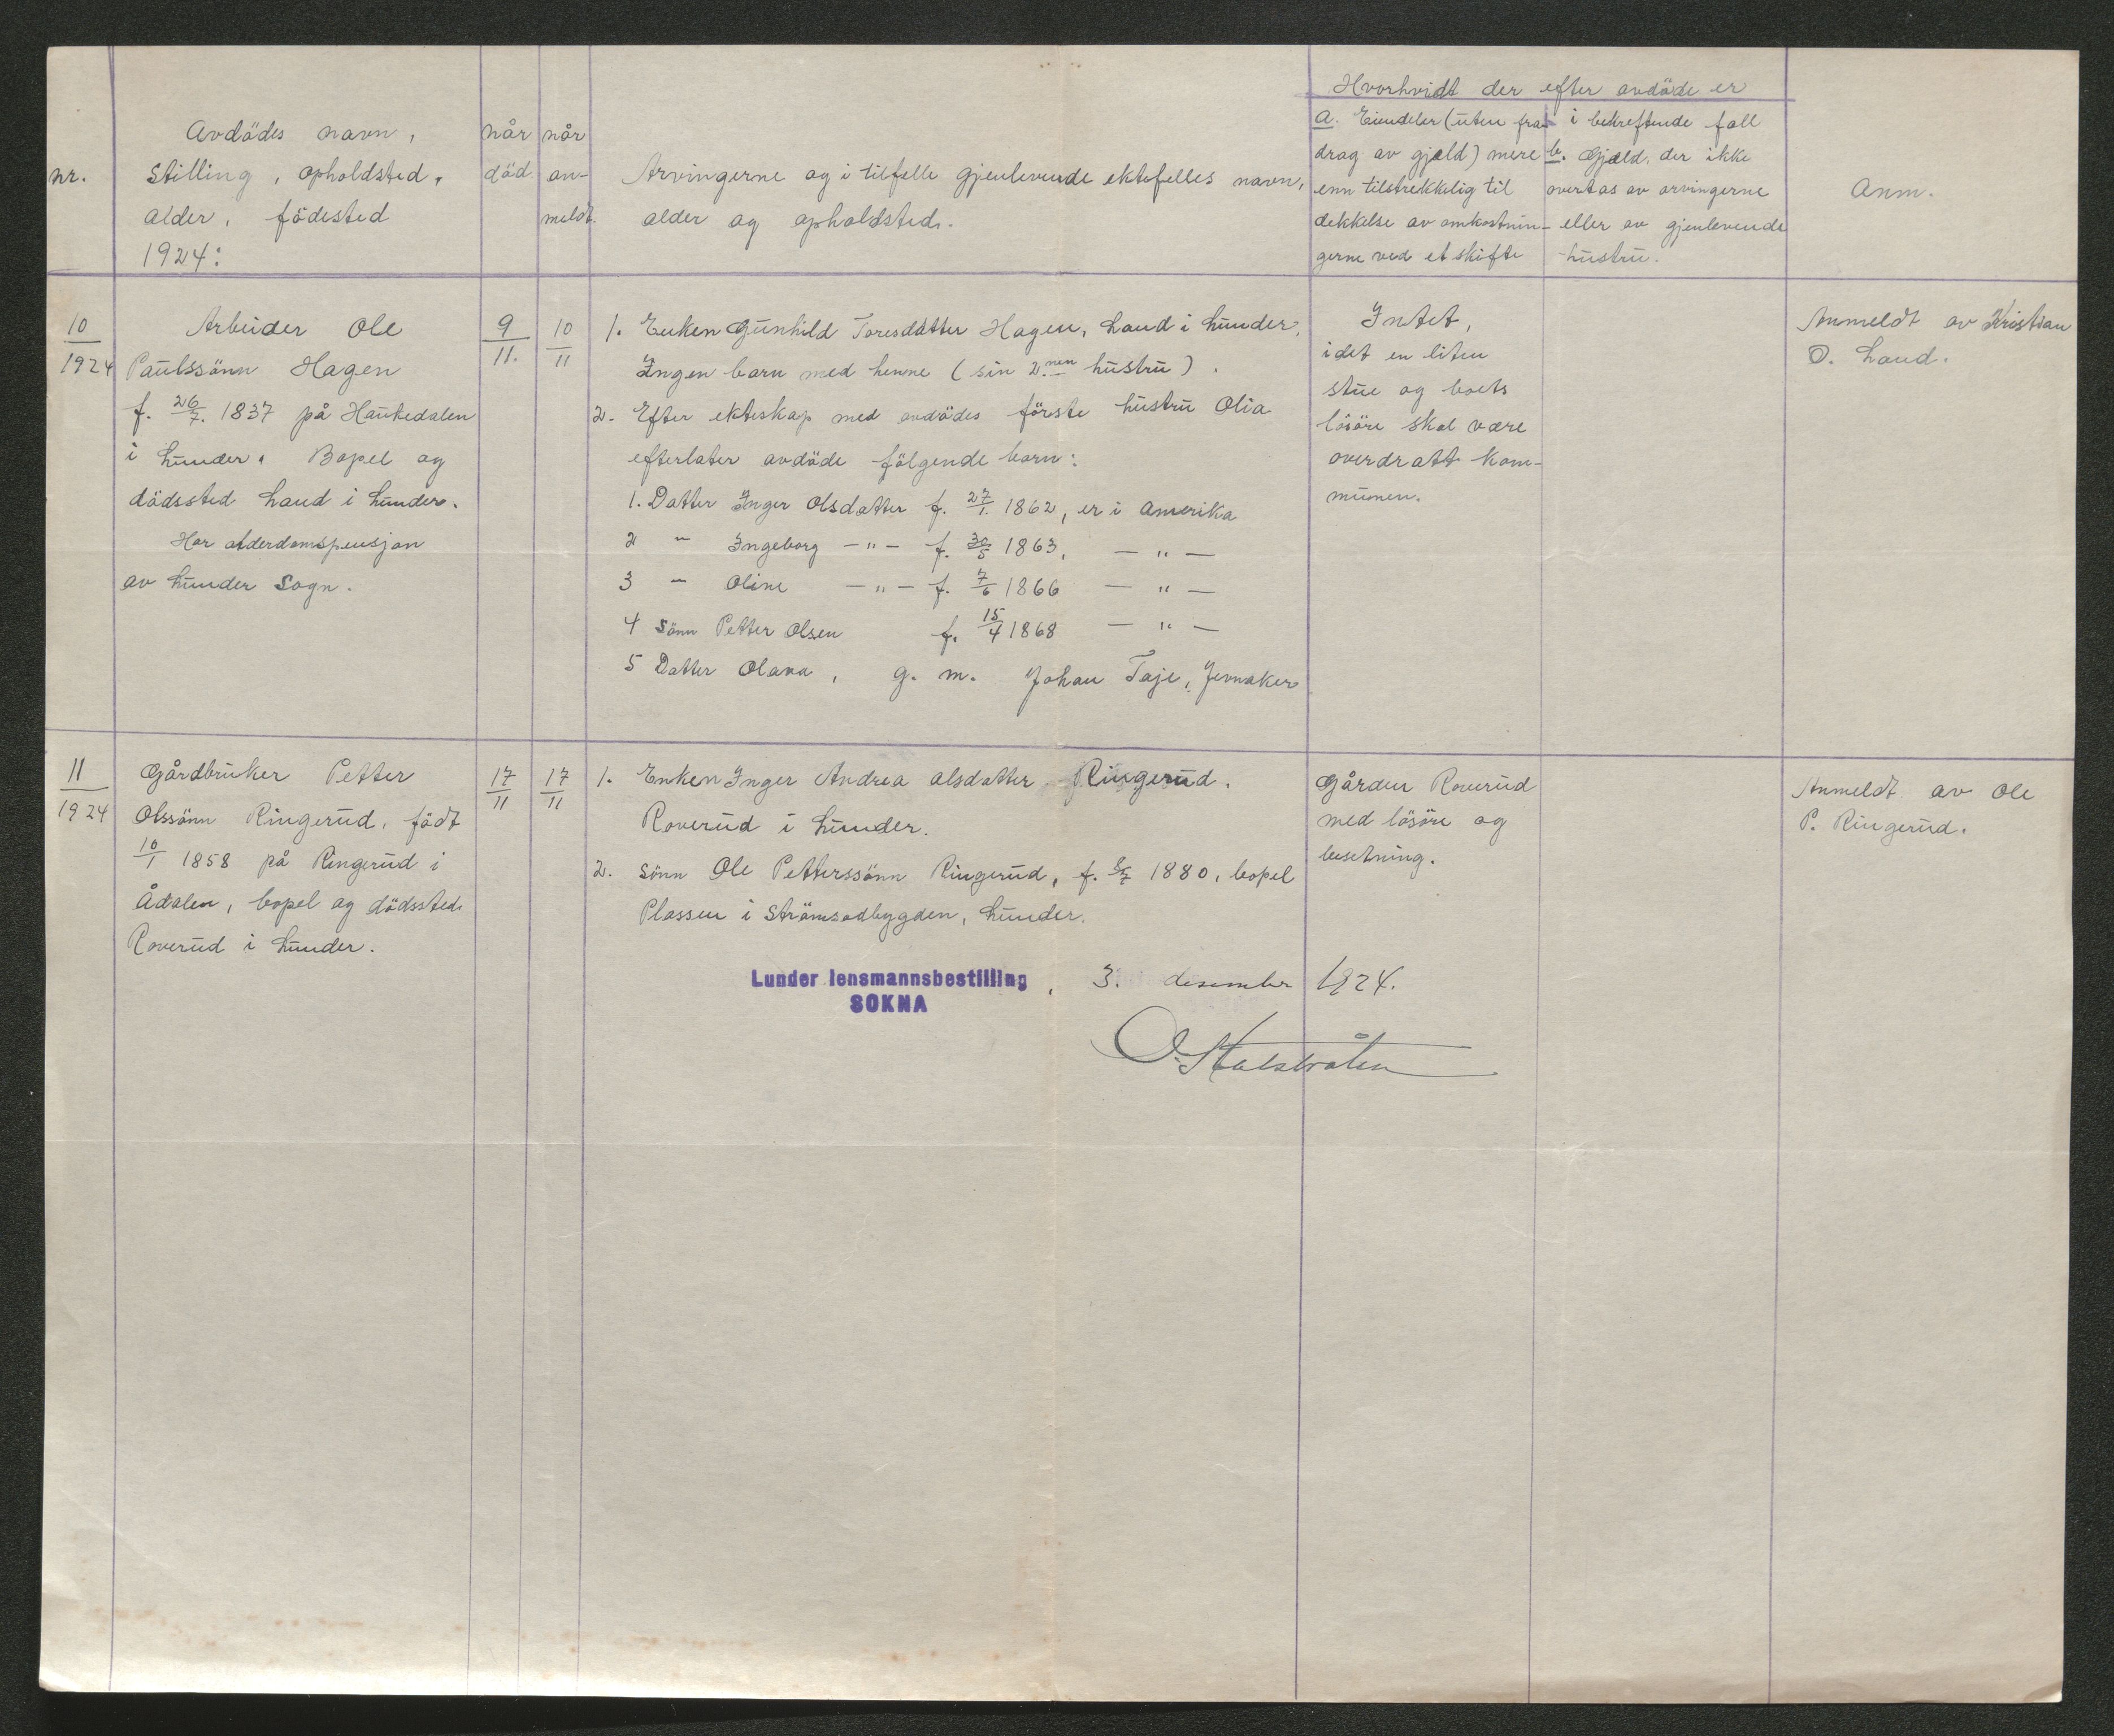 nr.
Avdödes navn,
stilling, opholdsted,
alder, födested
1924:
når
död
når
an-
meldt.
Arvingerne og i tilfelle gjenlevende ektefelles navn,
alder og opholdsted.
Hvorhvidt der efter avdöde er
a. Eiendeler (uten fra-
drag av gjæld) mere
enn tilstrekkelig til
dekkelse av omkostnin-
gerne ved et skifte
i bekreftende fall
b. Gjæld, der ikke
overtas av arvingerne
eller av gjenlevende
hustru.
Anm.
10
1924
Arbeider Ole
Paulssönn Hagen
f. 26/7. 1837 på Haukedalen
i Lunder. Bopel og
dödssted Laud i Lunder.
Har alderdomspensjon
av Lunder Sogn.
9/11.
10/11
1. Enken Gunhild Toresdatter Hagen, Laud i Lunder,
Ingen barn med henne (sin 2.nen hustru).
2. Efter ekteskap med avdödes förste hustru Olia
efterlater avdöde fölgende barn:
1. Datter Inger Olsdatter f. 27/1. 1862, er i Amerika
2 " Ingeborg —"— f. 30/5 1863, —"—
3 " Oline —"— f. 7/6 1866 —"—
4 Sönn Petter Olsen f. 15/4 1868 —"—
5 Datter Olava, g. m. Johan Taje, Jevnaker
Intet,
idet en liten
stue og boets
lösöre skal være
overdratt kom-
munen.
Anmeldt av Kristian
O. Laud.
11
1924
Gårdbruker Petter
Olssönn Ringerud, födt
10/1 1858 på Ringerud i
Ådalen, bopel og dödssted
Roverud i Lunder.
17/11
17/11
1. Enken Inger Andrea Olsdatter Ringerud.
Roverud i Lunder.
2. Sönn Ole Petterssönn Ringerud, f. 1880, bopel
Plassen i Strömsodbygden, Lunder.
Gården Roverud
med lösöre og
besetning.
Anmeldt av Ole
P. Ringerud.
Lunder lensmannsbestilling, 3. desember 1924.
SOKNA